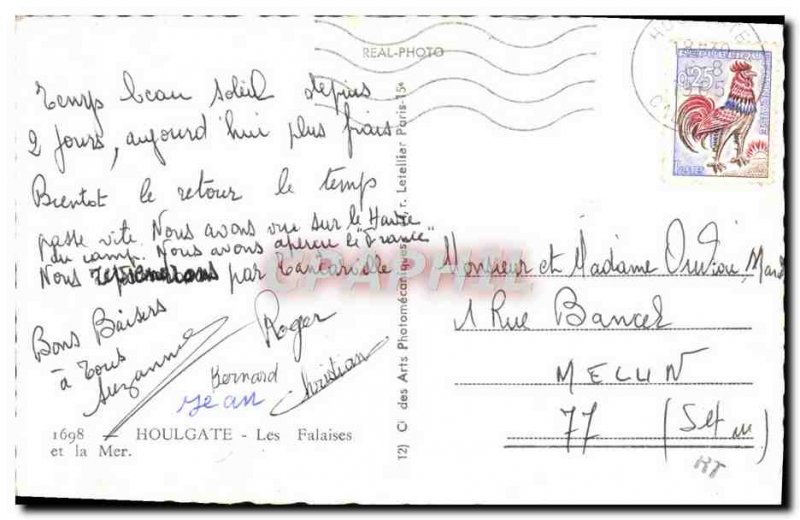 REAL-PHOTO
Temps beau soleil depuis
2 jours, aujourd'hui plus frais
Bientot le retour le temps
passe vite. Nous avons vue sur le Havre
du camp. Nous avons aperçu le "France"
Nous par Tancarville
Bons Baisers
à tous
Suzanne
Roger
Bernard
Jean
Christian
1698 - HOULGATE - Les Falaises
et la Mer.
12) Cl des Arts Photomécaniques - r. Letellier Paris-15e
0,25
POSTES
Monsieur et Madame
1 Rue Bancel
MELUN
77 (Set M)
RT
CPAPHIL